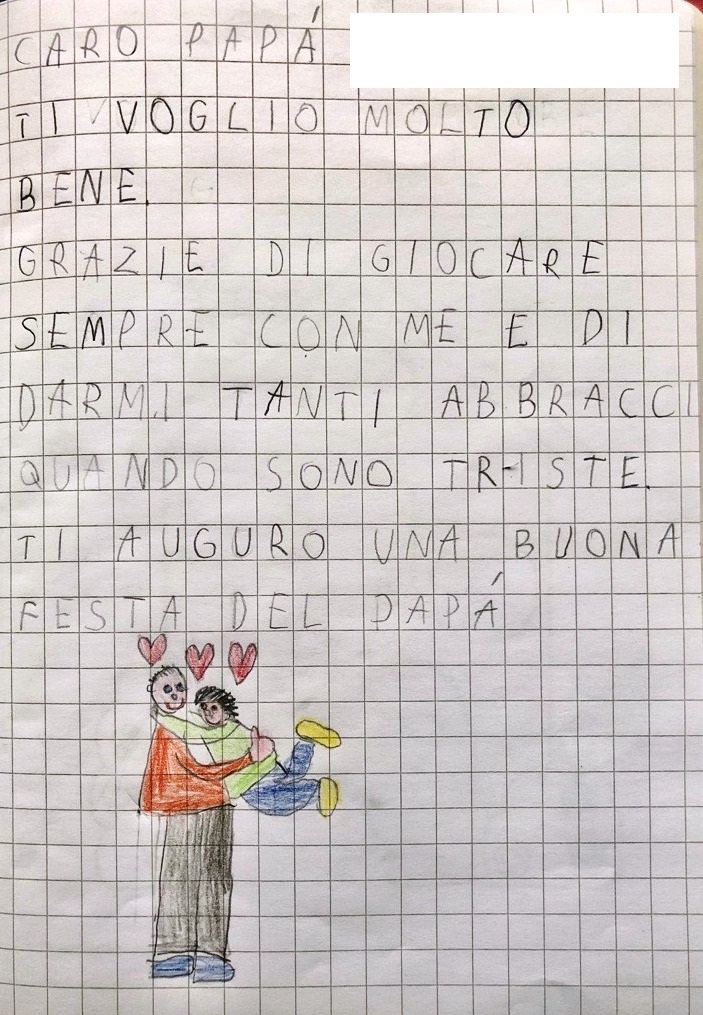 CARO PAPÁ
TI VOGLIO MOLTO
BENE.
GRAZIE DI GIOCARE
SEMPRE CON ME E DI
DARMI TANTI ABBRACCI
QUANDO SONO TRISTE.
TI AUGURO UNA BUONA
FESTA DEL PAPÁ